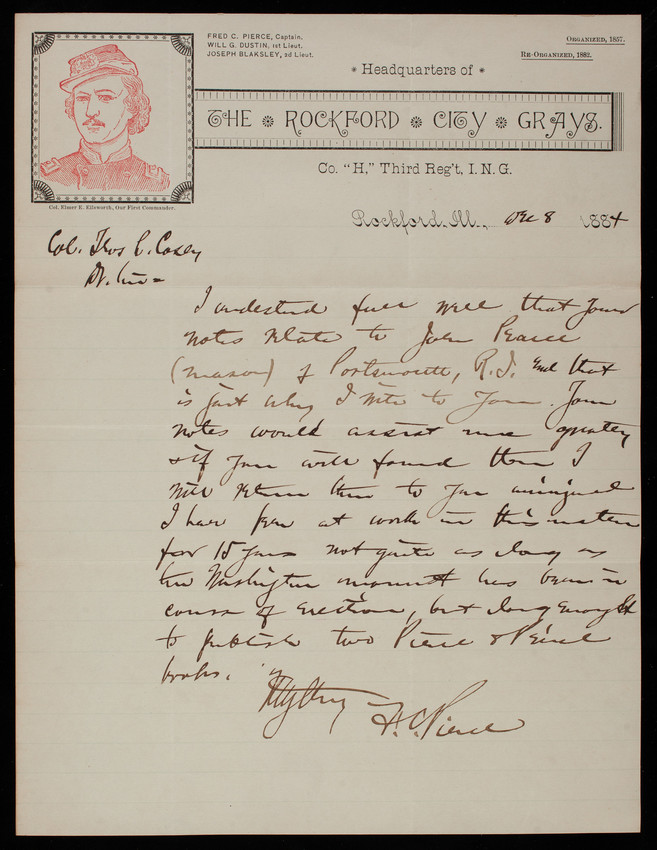 FRED C. PIERCE, Captain.
WILL G. DUSTIN, 1st Lieut.
JOSEPH BLAKSLEY, 2d Lieut.
ORGANIZED, 1857.
RE-ORGANIZED, 1882.
* Headquarters of *
THE ROCKFORD CITY GRAYS.
Co. "H," Third Reg't, I.N.G.
Col. Elmer E. Ellsworth, Our First Commander.
Rockford, Ill., Dec 8 1884
Col. Thos L. Casey
Dr. Sir =
I understand full well that your
notes relate to John Pearce
(mason) of Portsmouth, R.I. and that
is just why I write to you. Your
notes would assist me greatly
& if you will send them I
will return them to you uninjured
I have been at work in this matter
for 15 years not quite as long as
the Washington monument has been in
course of erection, but long enough
to publish two Pierce & Peirce
books.
F. C. Pierce